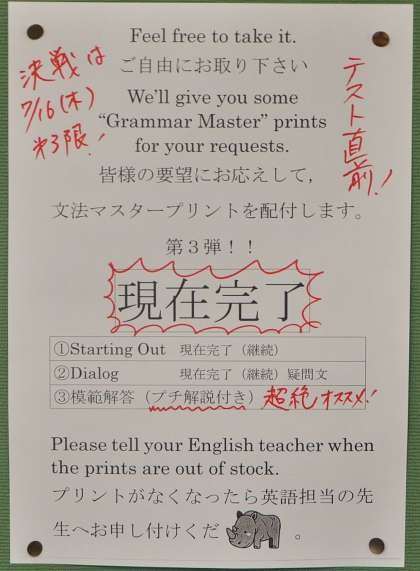 Feel free to take it.
ご自由にお取り下さい
決戦は
7/16(木)
第3限!
テスト直前!
We'll give you some
“Grammar Master” prints
for your requests.
皆様の要望にお応えして,
文法マスタープリントを配付します。
第3弾!!
現在完了
①Starting Out 現在完了（継続）
②Dialog 現在完了（継続）疑問文
③模範解答（プチ解説付き）超絶オススメ!
Please tell your English teacher when
the prints are out of stock.
プリントがなくなったら英語担当の先
生へお申し付けくだ 。